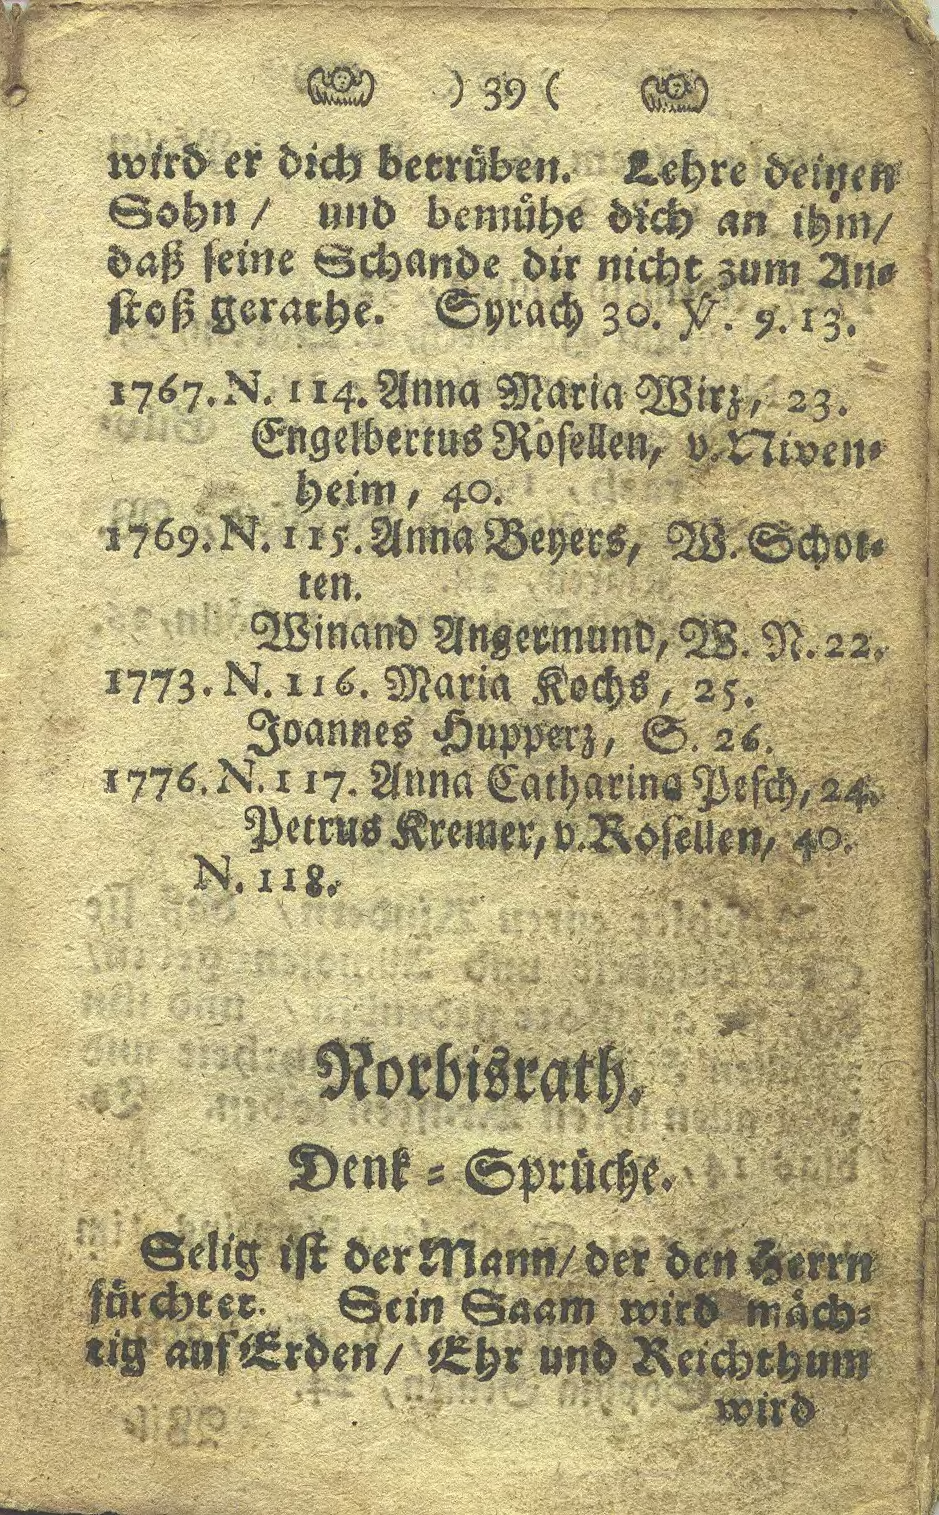 ) 39 (
wird er dich betrüben. Lehre deinen
Sohn / und bemühe dich an ihm/
daß seine Schande dir nicht zum An⸗
stoß gerathe. Syrach 30. V. 9. 13.
1767. N. 114. Anna Maria Wirz, 23.
Engelbertus Rosellen, v. Niven⸗
heim, 40.
1769. N. 115. Anna Beyers, W. Schot⸗
ten.
Winand Angermund, W. N. 22.
1773. N. 116. Maria Kochs, 25.
Joannes Hupperz, S. 26.
1776. N. 117. Anna Catharina Pesch, 24.
Petrus Kremer, v. Rosellen, 40.
N. 118.
Norbisrath.
Denk⸗Sprüche.
Selig ist der Mann/ der den Herrn
fürchtet. Sein Saam wird mäch⸗
tig auf Erden/ Ehr und Reichthum
wird